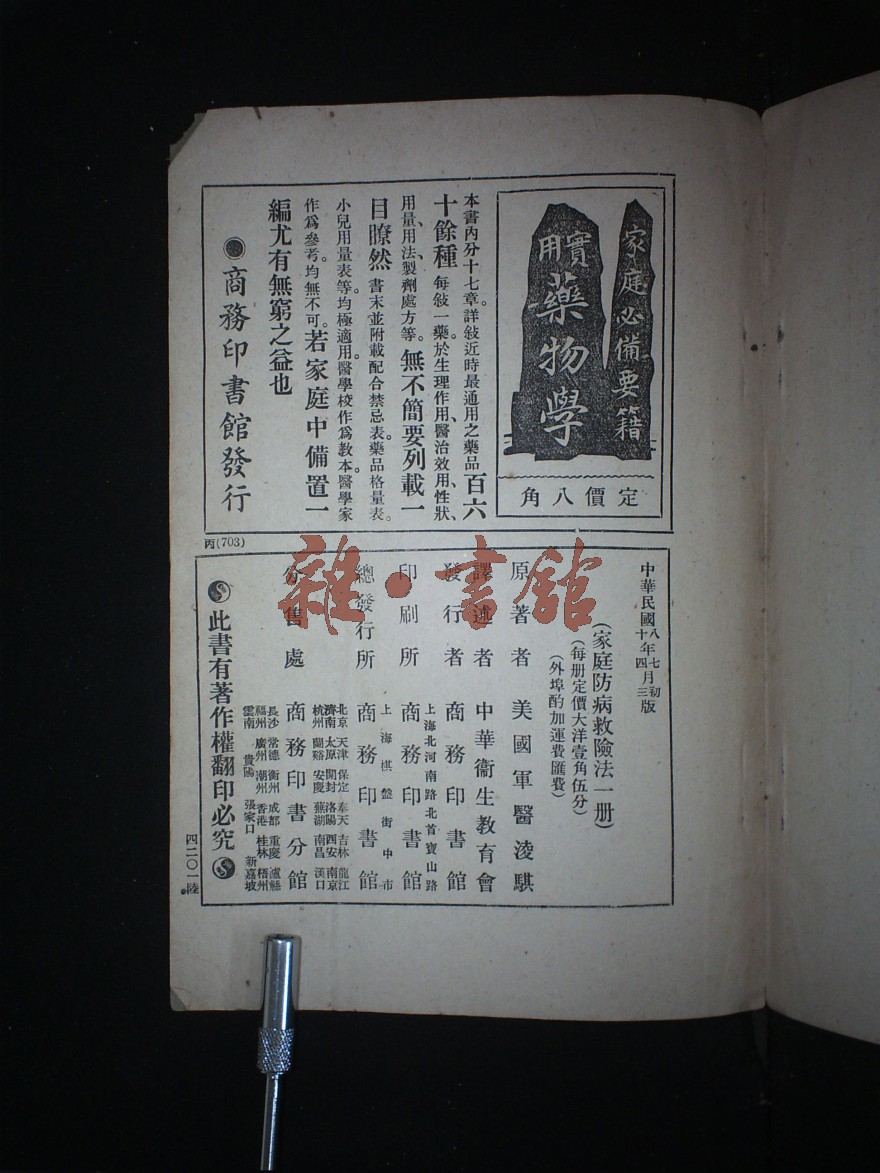 家庭必備要籍
實用
藥物學
定價八角
本書內分十七章。詳敍近時最通用之藥品百六
十餘種。每敍一藥於生理作用、醫治效用、性狀、
用量、用法、製劑處方等。無不簡要列載一
目瞭然。書末並附載配合禁忌表。藥品格量表。
小兒用量表等。均極適用。醫學校作爲教本。醫學家
作爲參考。均無不可。若家庭中備置一
編尤有無窮之益也
●商務印書館發行
丙(703)
中華民國八年七月初版
十四三
(家庭防病救險法一册)
(每册定價大洋壹角伍分)
(外埠酌加運費匯費)
原著者 美國軍醫淩騏
譯述者 中華衞生教育會
發行者 商務印書館
上海北河南路北首寶山路
印刷所 商務印書館
上海棋盤街中市
總發行所 商務印書館
北京 天津 保定 奉天 吉林 龍江
濟南 太原 開封 洛陽 西安 南京
杭州 蘭谿 安慶 蕪湖 南昌 漢口
分售處 商務印書分館
長沙 常德 衡州 成都 重慶 瀘縣
福州 廣州 潮州 香港 桂林 梧州
雲南 貴陽 張家口 新嘉坡
此書有著作權翻印必究
四二〇一陸
雜·書館